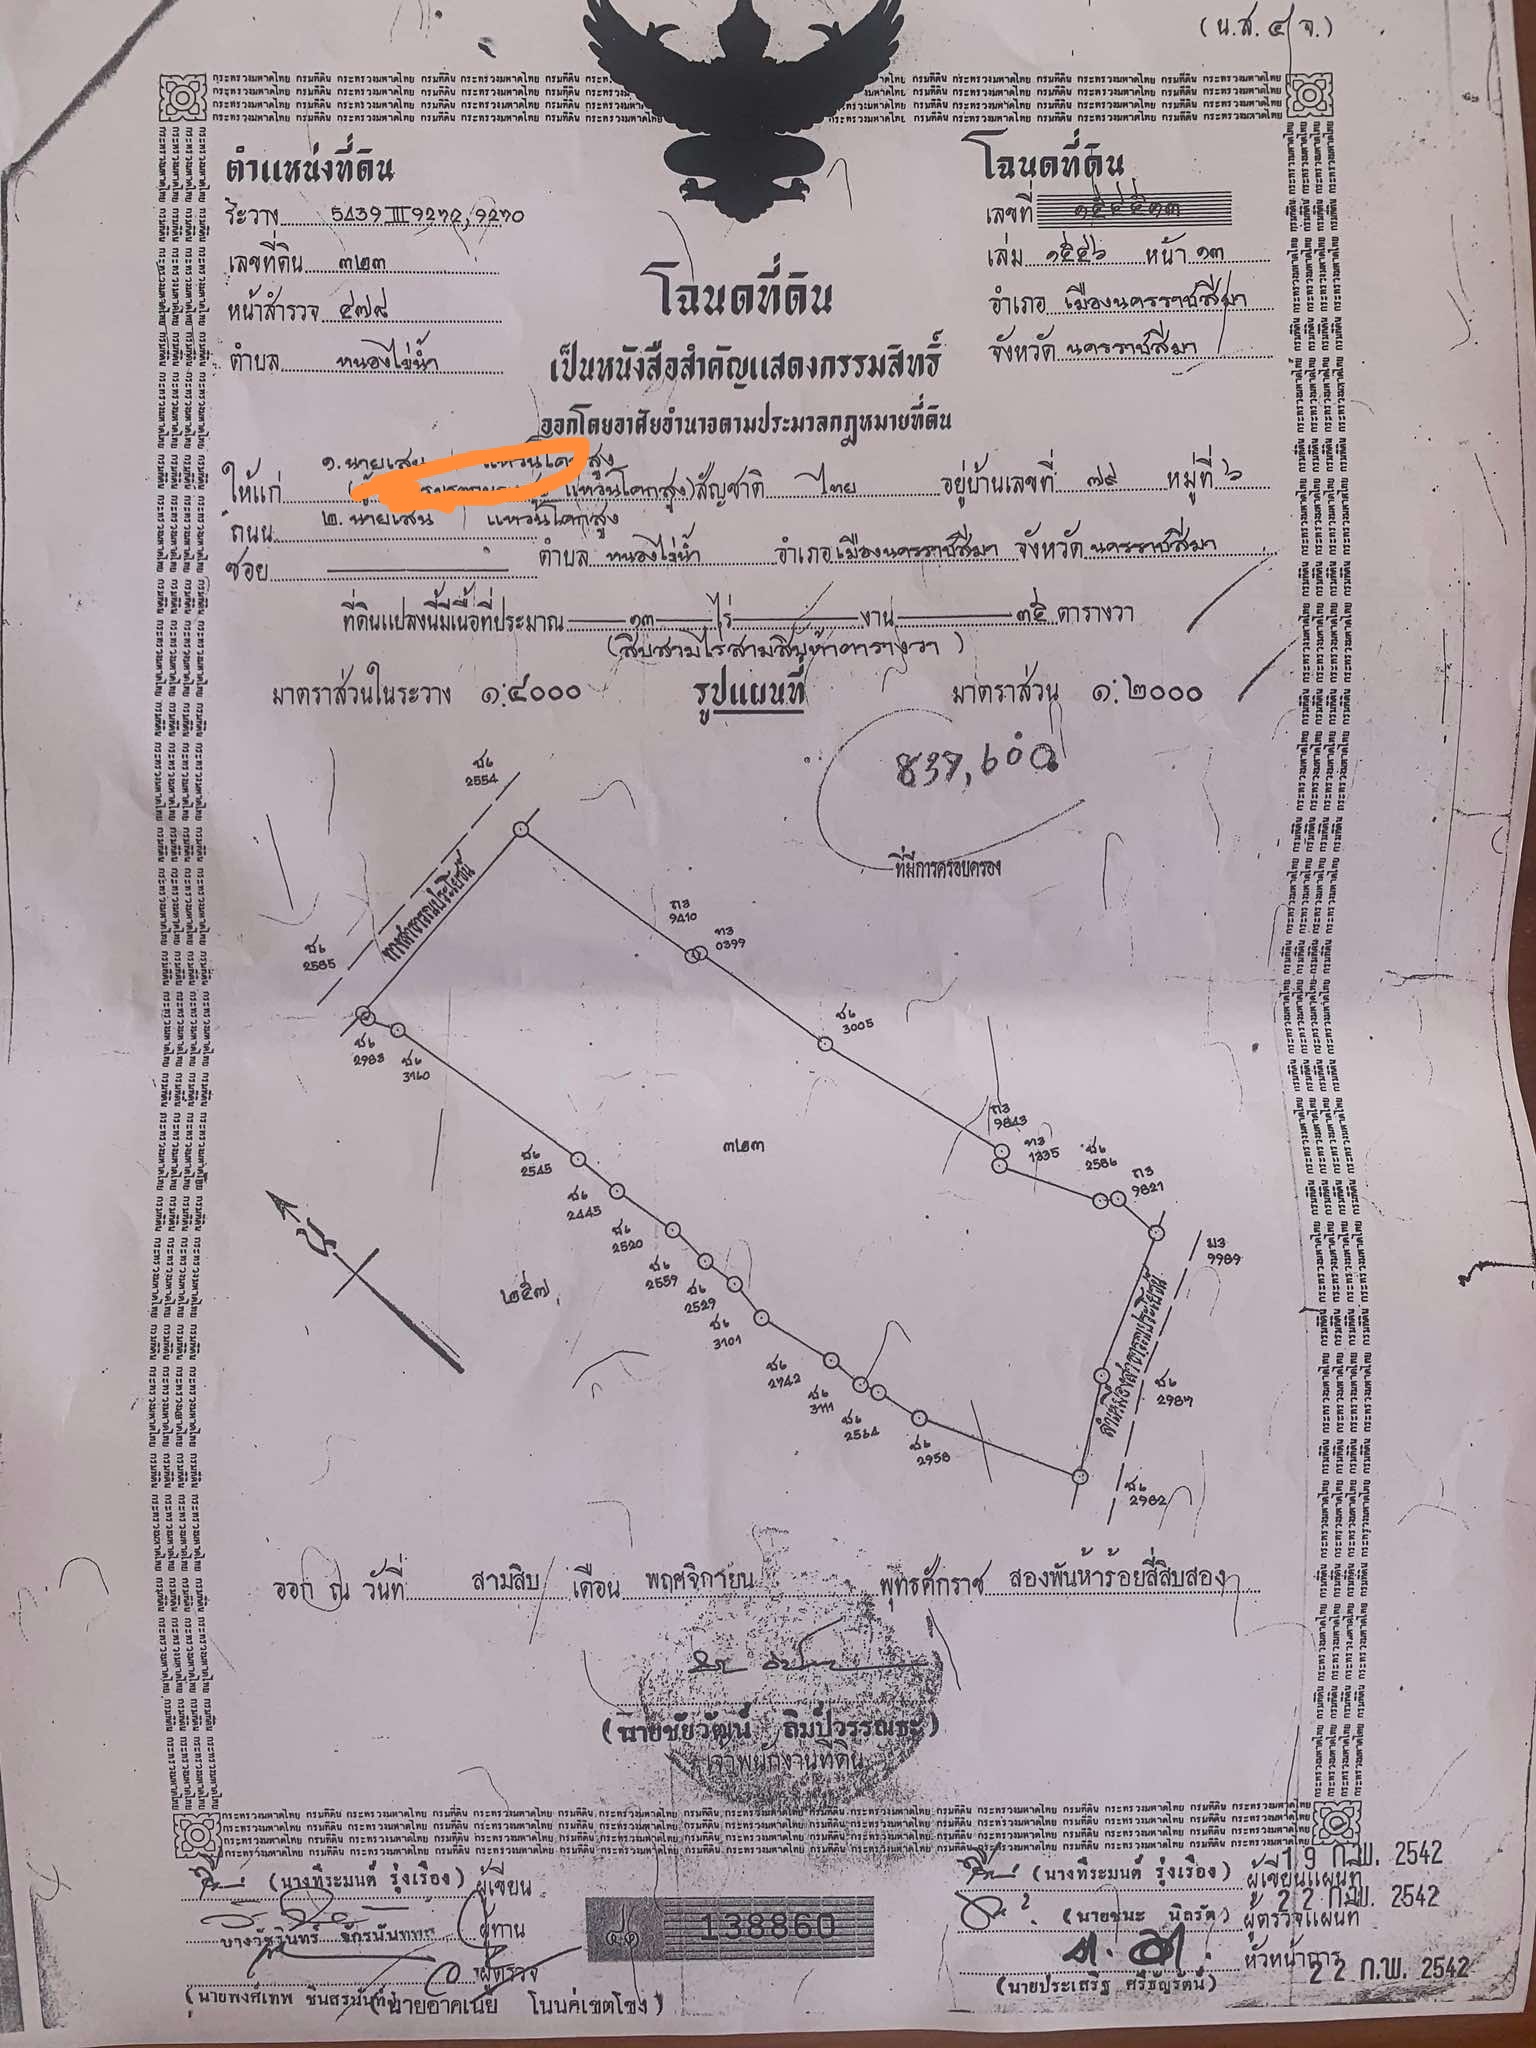 (น.ส. ๔ จ.)
ตำแหน่งที่ดิน
ระวาง 5439 III 9272, 9270
เลขที่ดิน ๓๒๓
หน้าสำรวจ ๔๗๙
ตำบล หนองไข่น้ำ
โฉนดที่ดิน
เลขที่
เล่ม ๑๕๔๖ หน้า ๑๓
อำเภอ เมืองนครราชสีมา
จังหวัด นครราชสีมา
โฉนดที่ดิน
เป็นหนังสือสำคัญแสดงกรรมสิทธิ์
ออกโดยอาศัยอำนาจตามประมวลกฎหมายที่ดิน
๑. นายเสน สูง
ให้แก่ แหวนโคกสูง) สัญชาติ ไทย อยู่บ้านเลขที่ ๗๙ หมู่ที่ ๖
ถนน ๒. นายเสน แหวนโคกสูง
ซอย ตำบล หนองไข่น้ำ อำเภอ เมืองนครราชสีมา จังหวัด นครราชสีมา
ที่ดินแปลงนี้มีเนื้อที่ประมาณ ๑๓ ไร่ งาน ๓๕ ตารางวา
(สิบสามไร่สามสิบห้าตารางวา)
มาตราส่วนในระวาง ๑:๔๐๐๐ รูปแผนที่ มาตราส่วน ๑:๒๐๐๐
ช๖
2554
ที่มีการครอบครอง
ทางสาธารณประโยชน์
ถ3
9410
ท3
0399
ช๖
2585
ช๖
3005
ช๖
2983
ช๖
3160
ถ3
9843
ท3
1335
ช๖
2586
ถ3
9821
๓๒๓
ช๖
2545
ช๖
2445
ช๖
2520
ม3
9989
ช๖
2559
๒๕๗
ช๖
2529
ช๖
3101
ลำเหมืองสาธารณประโยชน์
ช๖
2742
ช๖
3111
ช๖
2987
ช๖
2564
ช๖
2958
ช๖
2982
ออก ณ วันที่ สามสิบ เดือน พฤศจิกายน พุทธศักราช สองพันห้าร้อยสี่สิบสอง
(นายชัยวัฒน์ ลิมป์วรรณธะ)
เจ้าพนักงานที่ดิน
(นางทิระมนต์ รุ่งเรือง) ผู้เขียน
ผู้ทาน
ผู้ตรวจ
138860
(นางทิระมนต์ รุ่งเรือง) ผู้เขียนแผนที่ 19 ก.พ. 2542
(นายชนะ นิลรัต) ผู้ตรวจแผนที่ 22 ก.พ. 2542
หัวหน้าการ
(นายประเสริฐ ศรีธัญรัตน์) 22 ก.พ. 2542